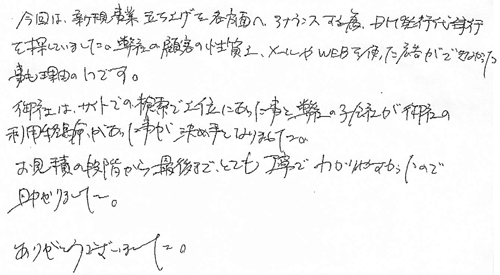 今回は、新規事業立ち上げを各方面へ、アナウンスする為、DM発行代行
を探していました。弊社の顧客の性質上、メールやWEBを使った広告ができなかった
事も理由の1つです。
御社は、サイトでの検索で上位にあった事と、弊社の子会社が御社の
利用経験があった事が決め手となりました。
お見積の段階から最後まで、とても丁寧でわかりやすかったので
助かりました。
ありがとうございました。